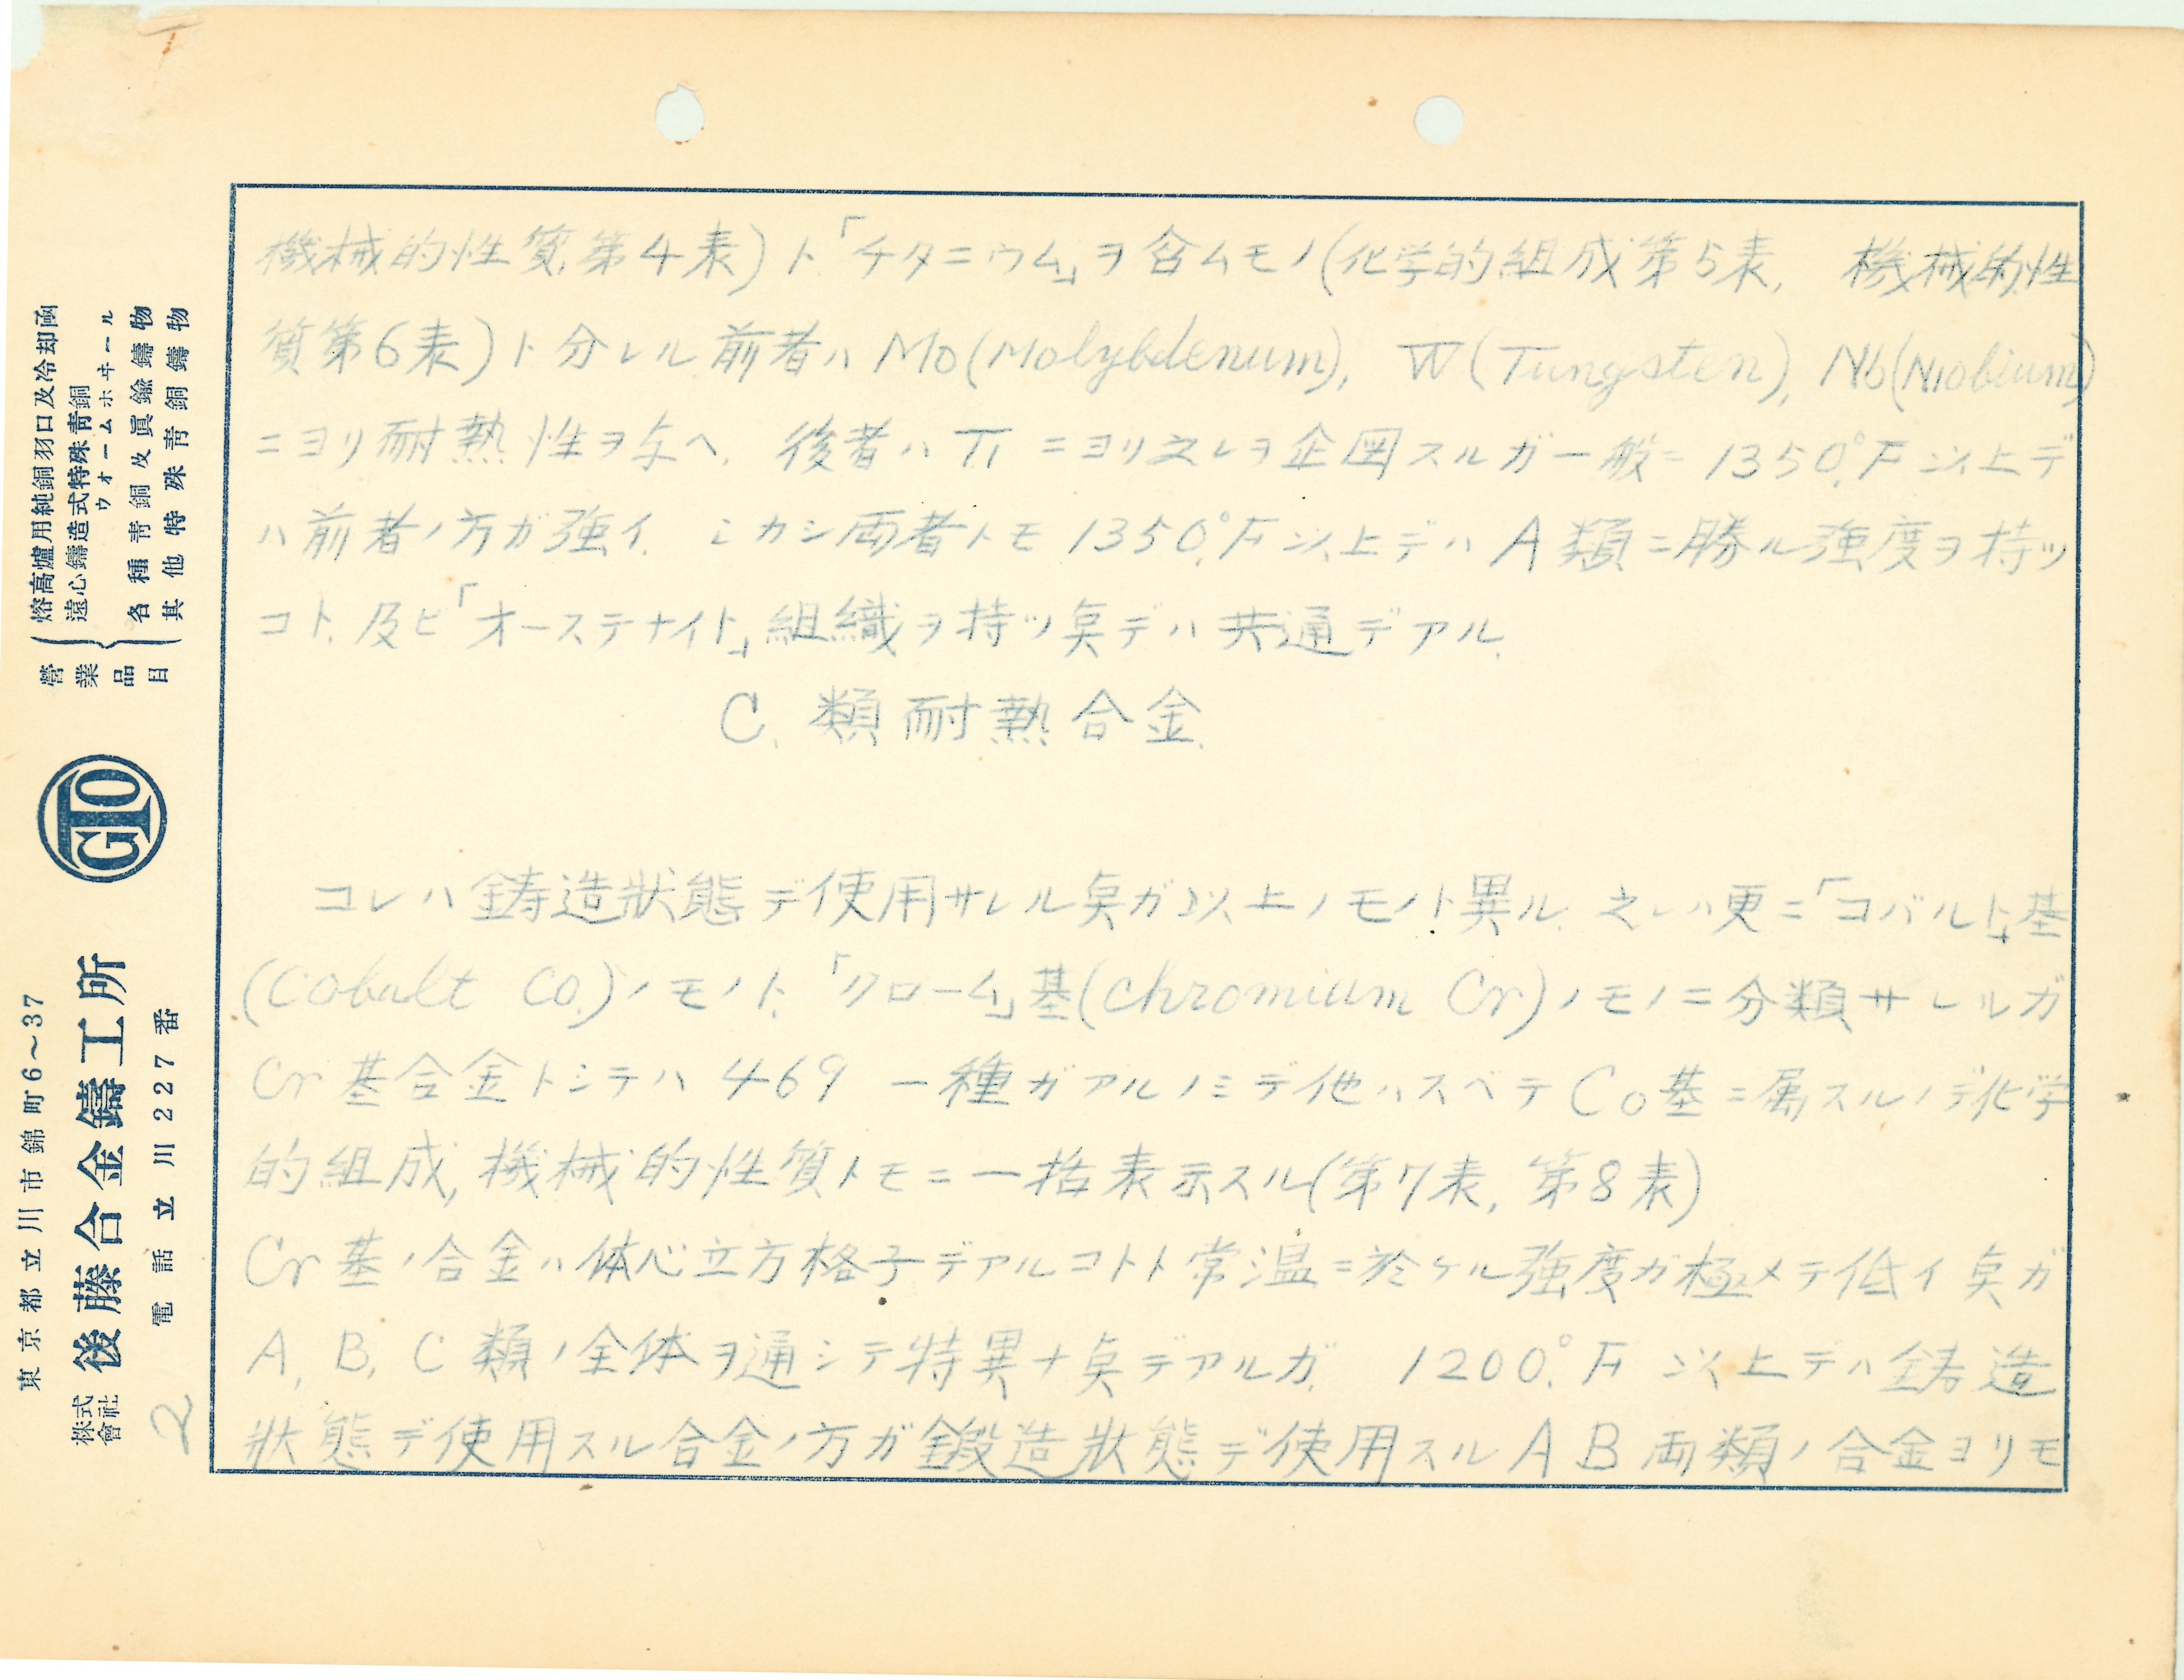 機械的性質,第4表)ト「チタニウム」ヲ含ムモノ(化学的組成第5表, 機械的性
質第6表)ト分レル前者ハMo(Molybdenum), W(Tungsten), Nb(Niobium)
ニヨリ耐熱性ヲ与ヘ, 後者ハTiニヨリ之レヲ企図スルガ一般ニ1350°F以上デ
ハ前者ノ方ガ強イ. シカシ両者トモ1350°F以上デハA類ニ勝ル強度ヲ持ツ
コト,及ビ「オーステナイト」組織ヲ持ツ奌デハ共通デアル.
C. 類耐熱合金.
コレハ鋳造狀態デ使用サレル奌ガ以上ノモノト異ル. 之レハ更ニ「コバルト」基
(Cobalt Co.)ノモノト,「クローム」基(Chromium Cr)ノモノニ分類サレルガ
Cr基合金トシテハ469 一種ガアルノミデ他ハスベテCo基ニ属スルノデ化学
的組成,機械的性質トモニ一括表示スル(第7表,第8表)
Cr基ノ合金ハ体心立方格子デアルコトト常温ニ於ケル強度ガ極メテ低イ奌ガ
A, B, C類ノ全体ヲ通シテ特異ナ奌デアルガ, 1200°F以上デハ鋳造
狀態デ使用スル合金ノ方ガ鍛造狀態デ使用スルAB両類ノ合金ヨリモ
營業品目
熔高爐用純銅羽口及冷却函
遠心鑄造式特殊靑銅
ウオームホヰール
各種靑銅及眞鍮鑄物
其他特殊靑銅鑄物
GTO
東京都立川市錦町6〜37
株式會社 後藤合金鑄工所
電話立川227番
2